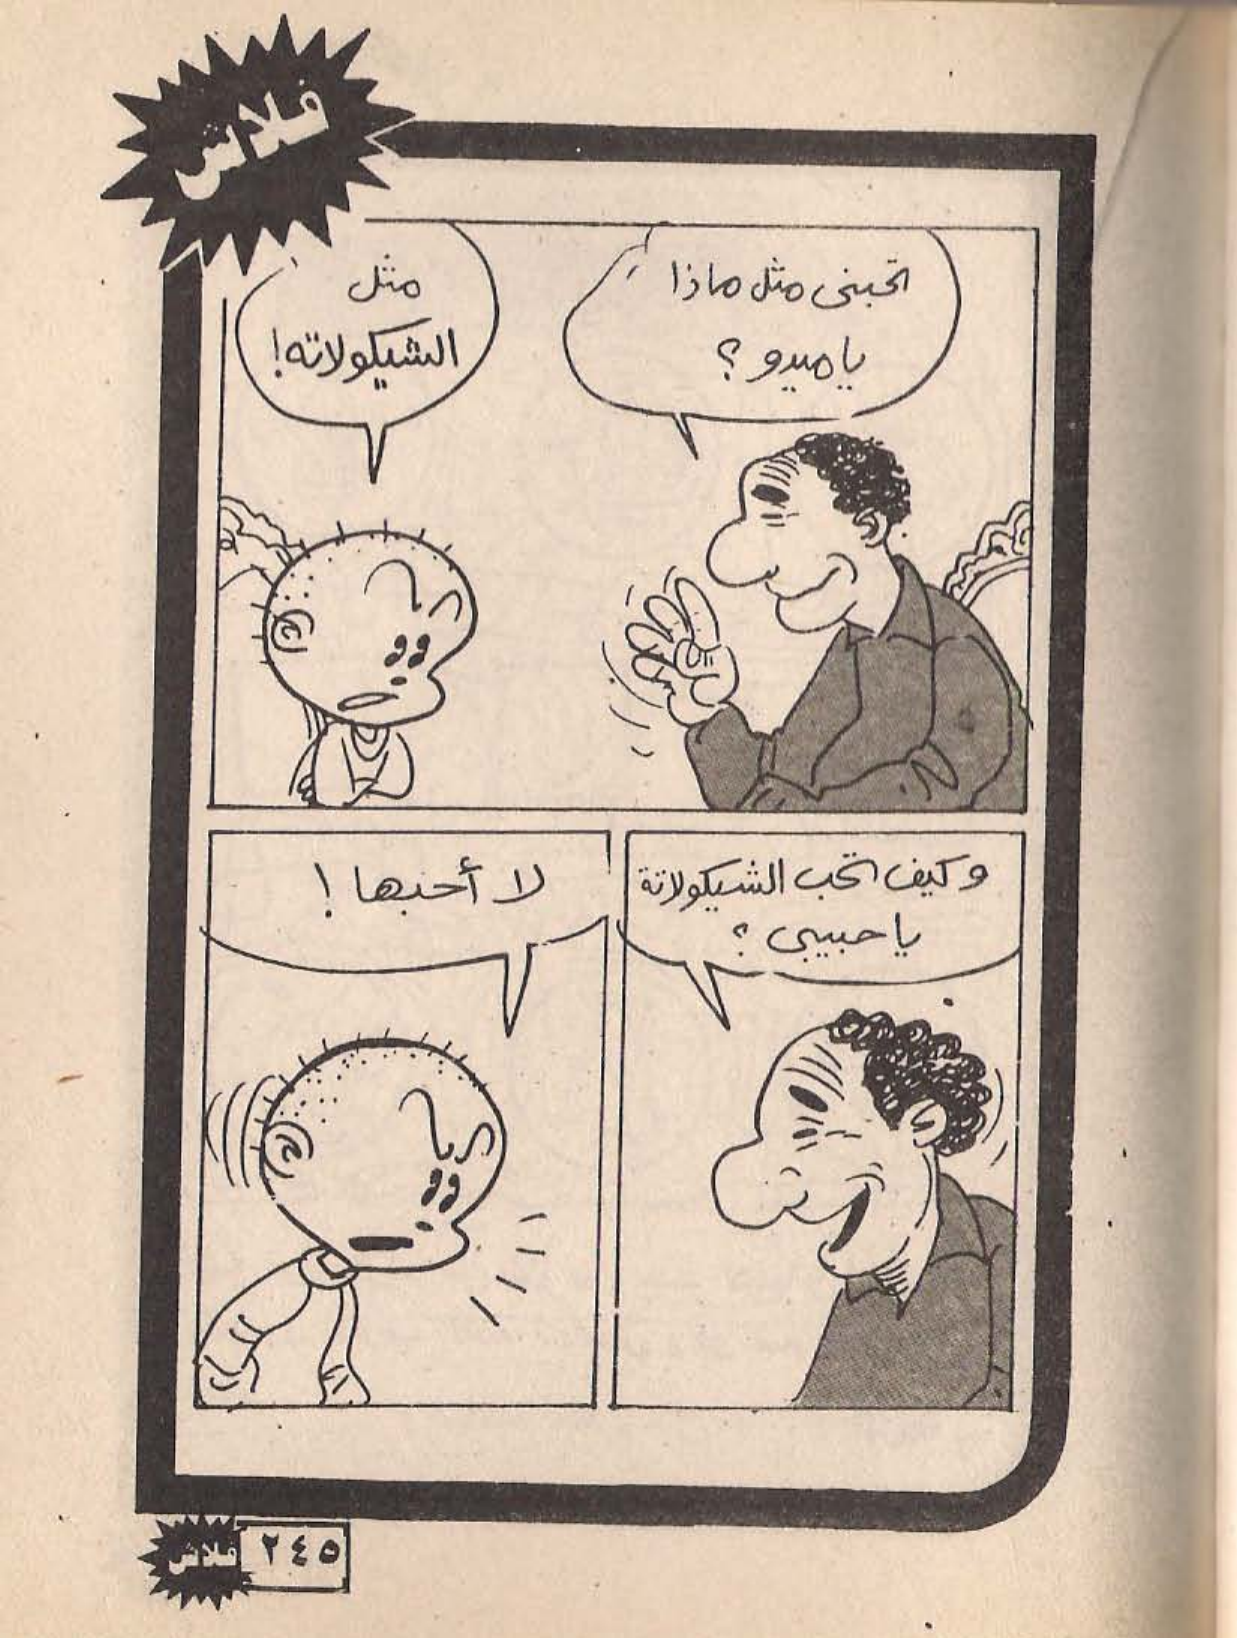 فلاش
تحبنى مثل ماذا
يا ميدو ؟
مثل
الشيكولاته !
وكيف تحب الشيكولاتة
يا حبيبى ؟
لا أحبها !
فلاش
٢٤٥